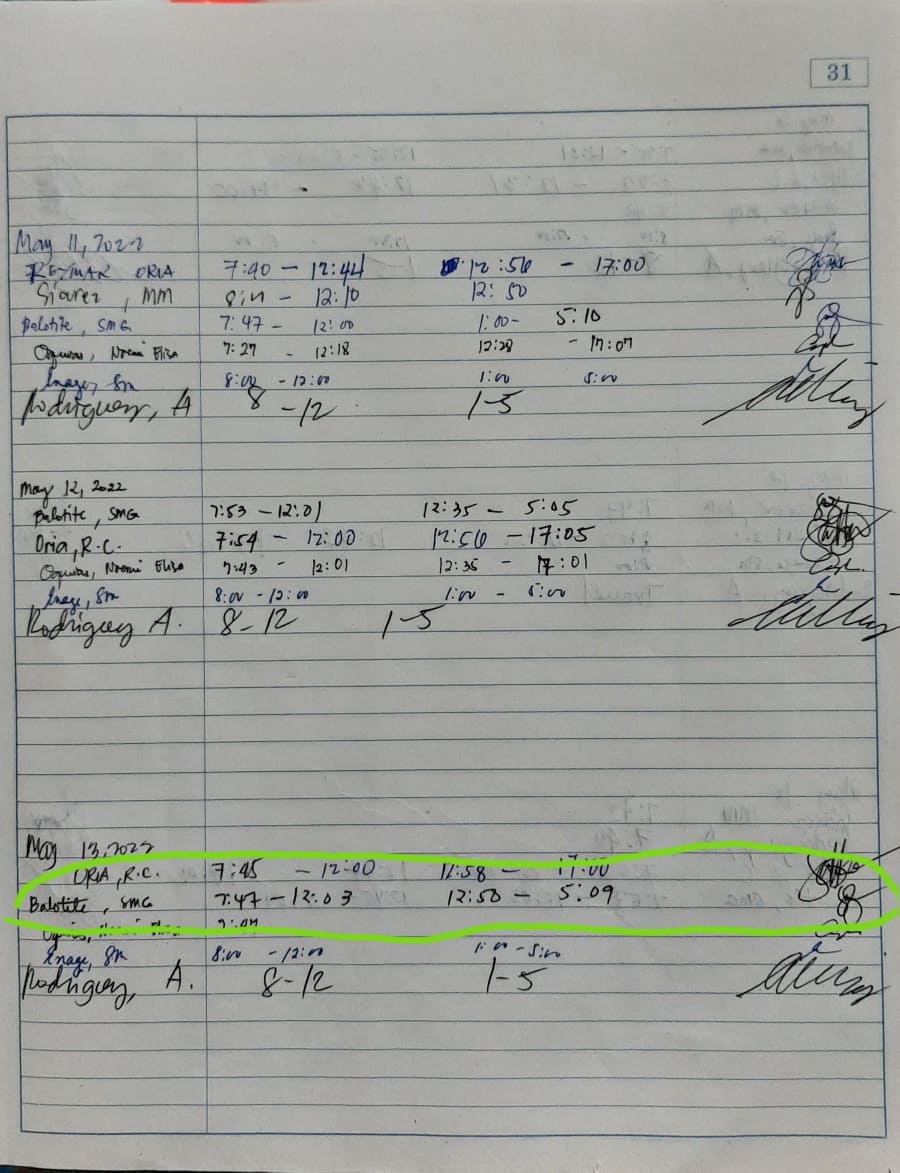 31
May 11, 2022
REYMAR ORIA 7:40 - 12:44 12:56 - 17:00
Siarez, MM 8in - 12:10 12:50
Balotite, SMG 7:47 - 12:00 1:00- 5:10
Oquias, Noemi Elisa 7:27 - 12:18 12:28 - 17:07
Inage, SM 8:00 - 12:00 1:00 5:00
Rodriguez, A 8 -12 1-5
May 12, 2022
Balotite, SMG 7:53 - 12:01 12:35 - 5:05
Oria, R.C. 7:54 - 12:00 12:56 - 17:05
Noemi Elisa 7:43 - 12:01 12:35 - 17:01
Inage, SM 8:00 - 12:00 1:00 - 5:00
Rodriguez A. 8-12 1-5
May 13, 2022
ORIA, R.C. 7:45 - 12:00 12:58 - 17:00
Balotite, SMG 7:47 - 12:03 12:50 - 5:09
Inage, SM 8:00 - 12:00 1:00 - 5:00
Rodriguez, A. 8-12 1-5